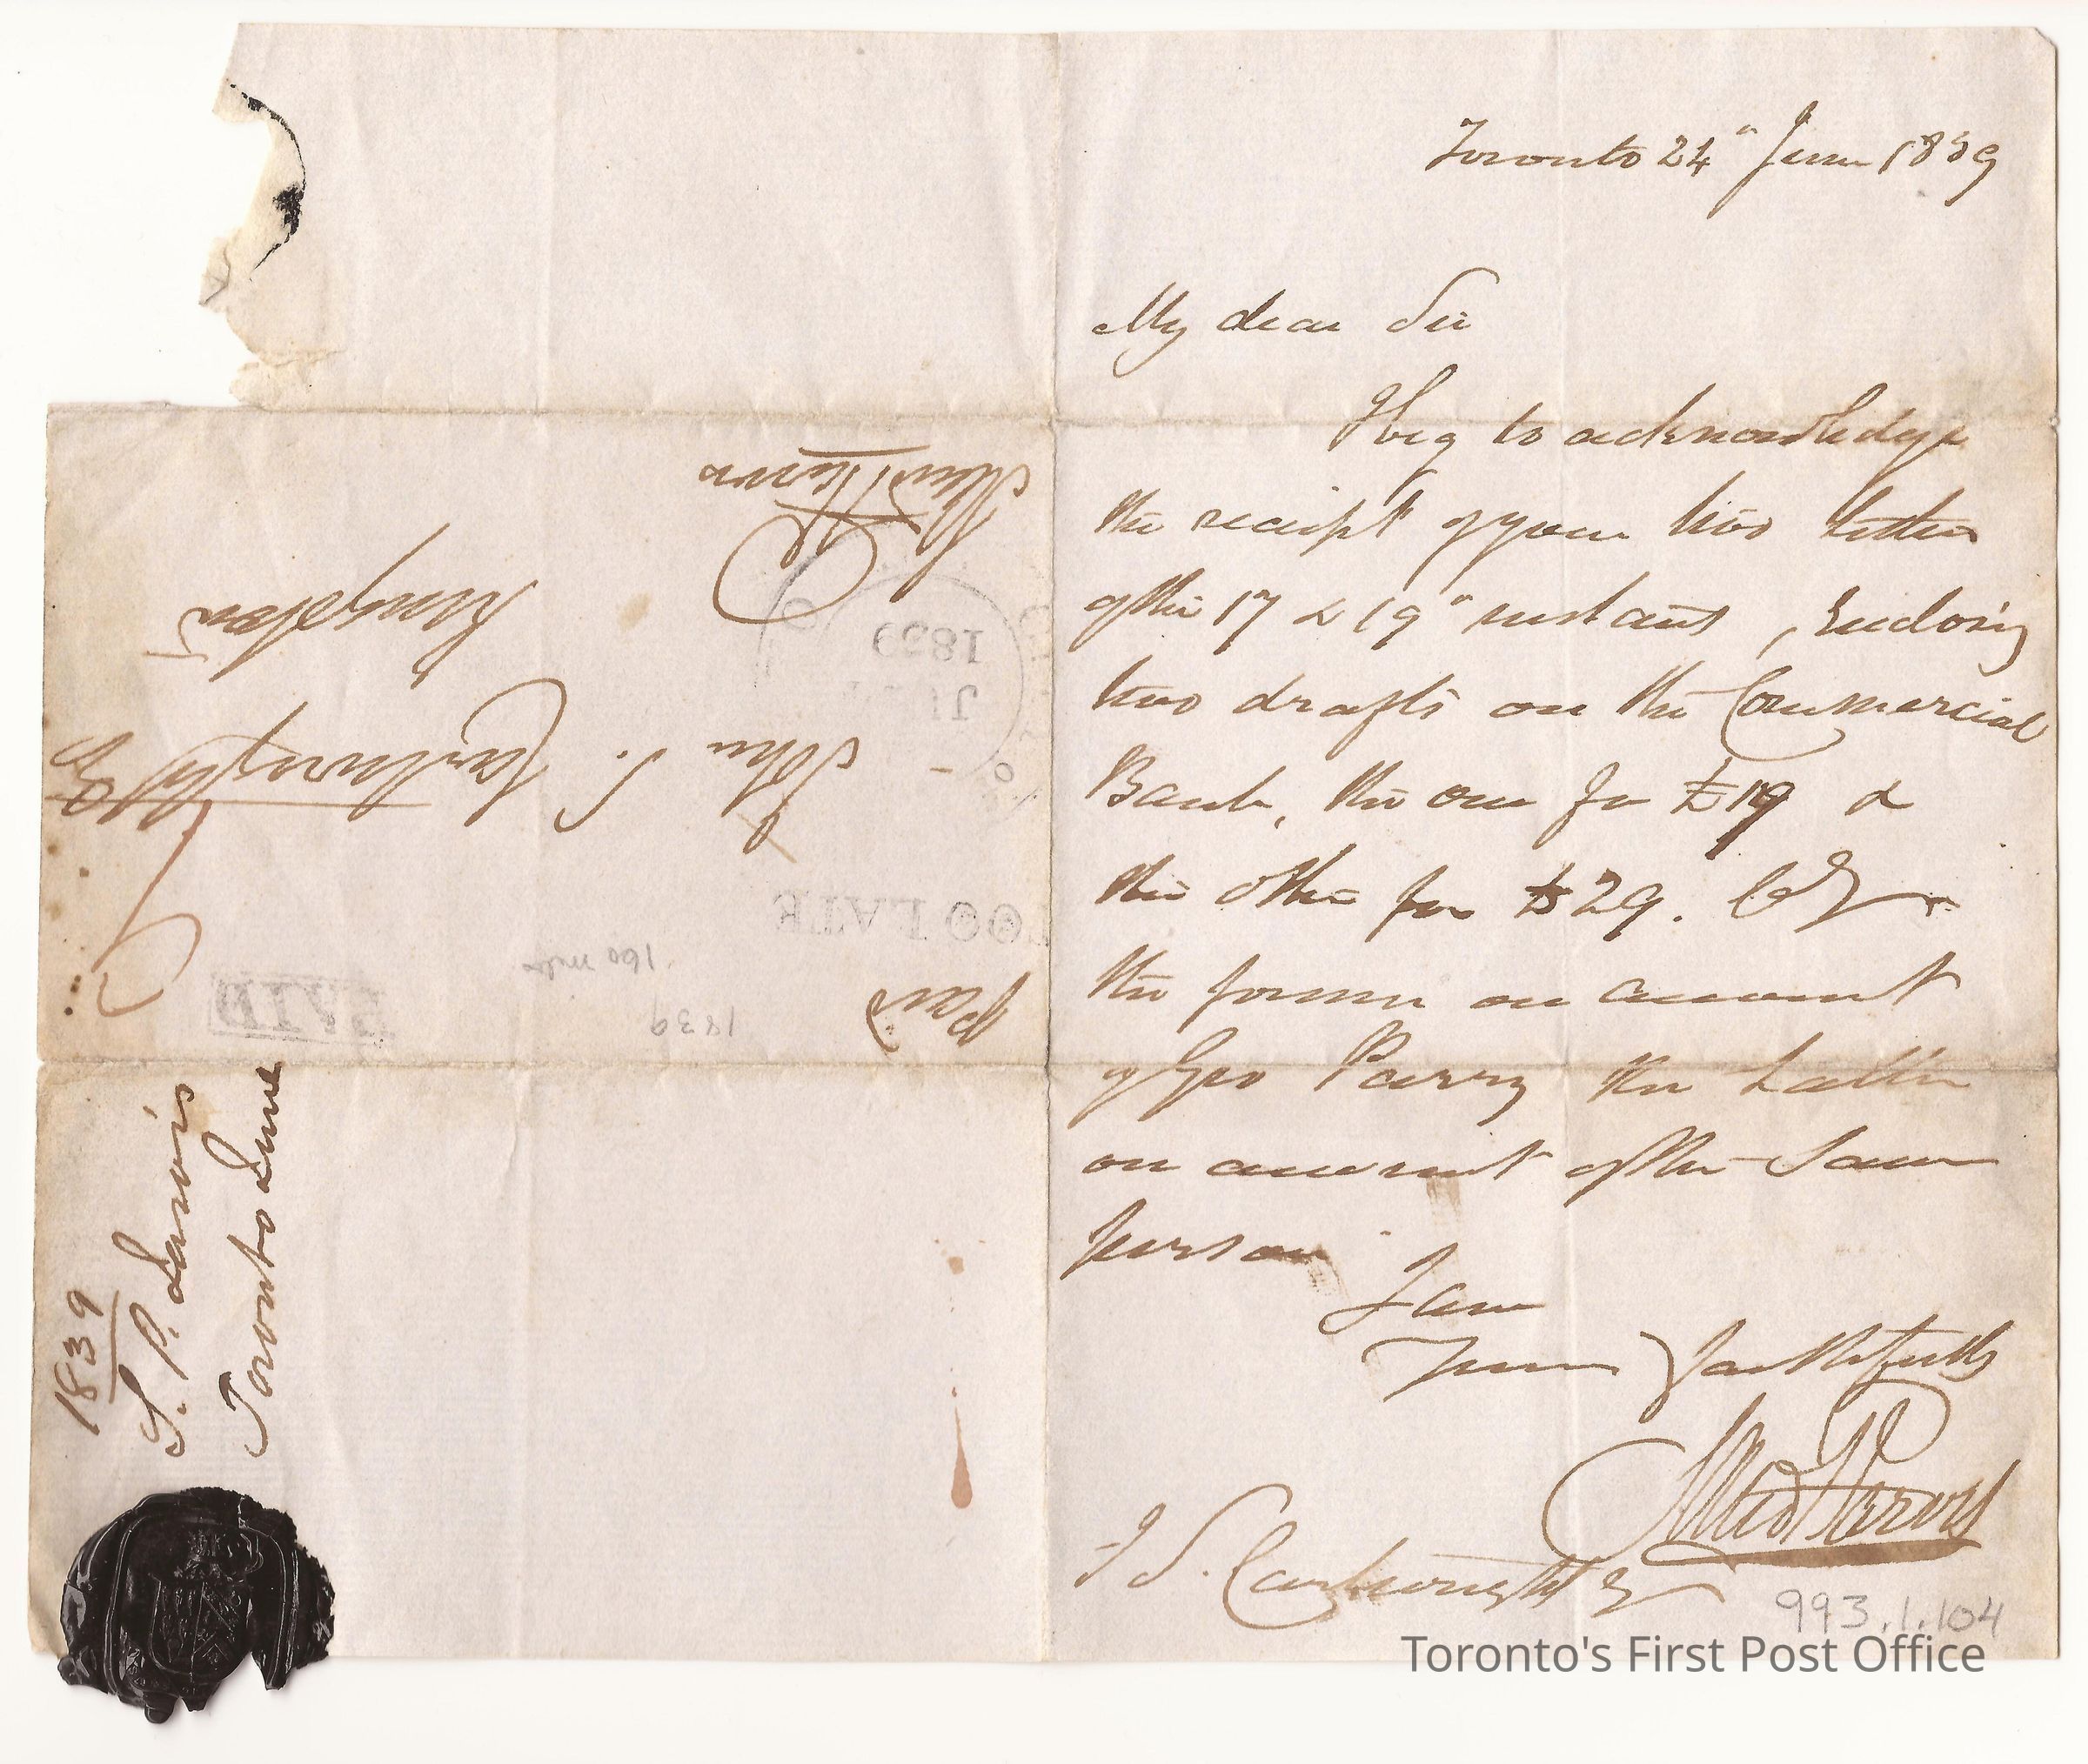 Toronto 24" June 1839
My dear Sir
I beg to acknowledge
the receipt of your two letters
of the 17 & 19" instant, Enclosing
two drafts on the Commercial
Bank, the one for £19 &
the other for £29.
the former on account
of Geo Parry the Latter
on account of the Same
person
I am
Yours faithfully
J S. Cartwright Esq
993.1.104
Toronto's First Post Office
Paid
1839
160 miles
PAID
TOO LATE
John S. Cartwright Esq
Kingston
1839
1839
S. P. Jarvis
Toronto June